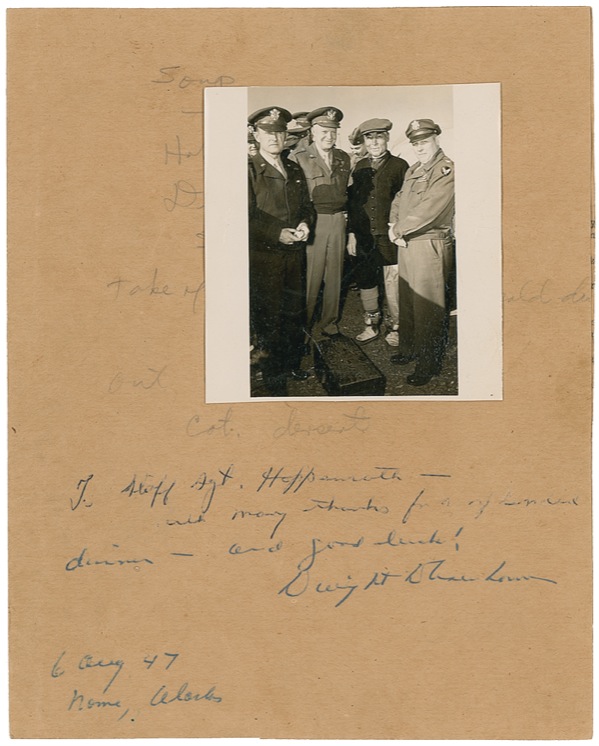 Soup
Ha
D
take
out
cot. desserts
To Staff Sgt. Heppenroth —
with many thanks for a splendid
dinner — and good luck!
Dwight D Eisenhower
6 Aug 47
Nome, Alaska